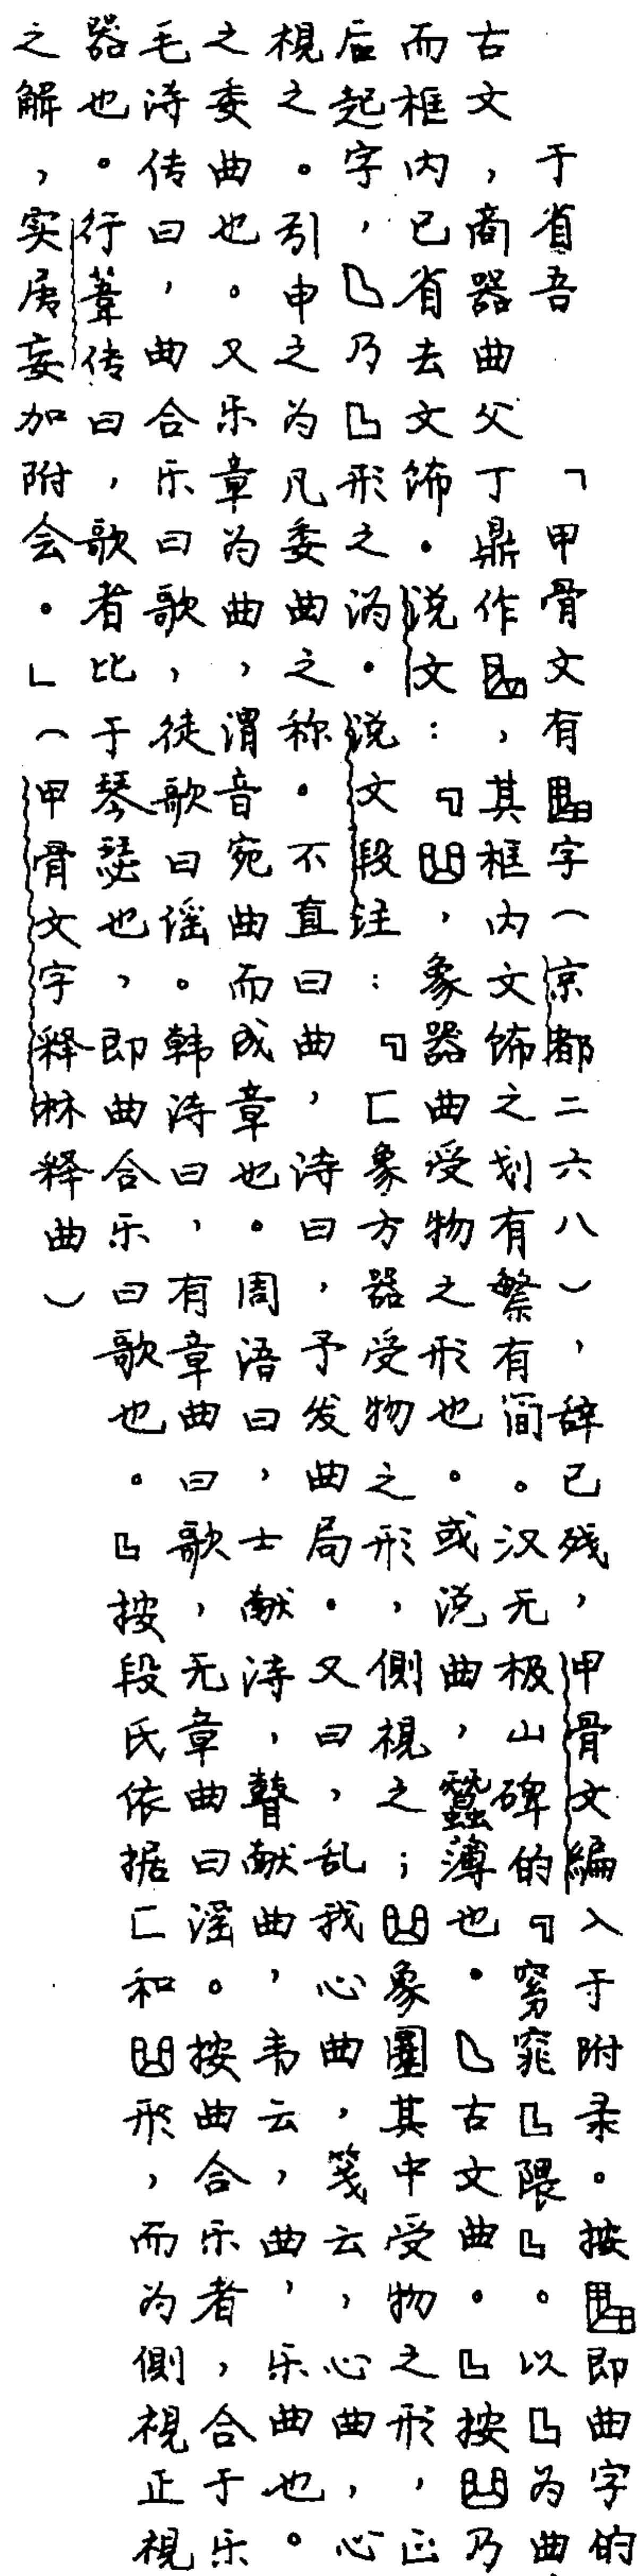 于省吾 「甲骨文有字（京都二六八），辞已残，甲骨文编入于附录。按即曲字的
古文，商器曲父丁鼎作，其框内文饰之划有繁有简。汉无极山碑的『窈窕』隈』。以』为曲
而框内已省去文饰。说文：『，象器曲受物之形也。或说曲，蠶薄也。古文曲。』按乃
后起字，乃形之讹。说文段注：『匚象方器受物之形，侧視之；象圜其中受物之形，正
視之。引申之为凡委曲之称。不直曰曲，诗曰，予发曲局。又曰，乱我心曲，笺云，心曲，心
之委曲也。又乐章为曲，谓音宛曲而成章也。周语曰，士献诗，瞽献曲，韦云，曲，乐曲也。
毛诗传曰，曲合乐曰歌，徒歌曰谣。韩诗曰，有章曲曰歌，无章曲曰谣。按曲合乐者，合于乐
器也。行葦传曰，歌者比于琴瑟也，即曲合乐曰歌也。』按段氏依据匚和形，而为側視正視
之解，实属妄加附会。」（甲骨文字释林释曲）